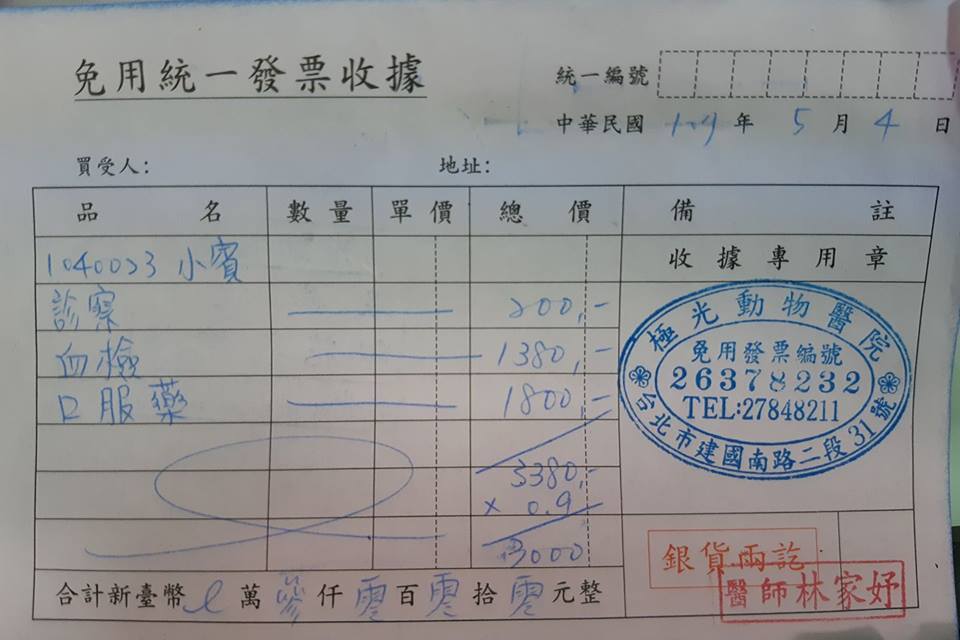 免用統一發票收據
統一編號
中華民國 109 年 5 月 4 日
買受人： 地址：
品名 數量 單價 總價 備註
收據專用章
1040023 小賓
診察 200,-
血檢 1380,-
口服藥 1800,-
3380,-
× 0.9
3000
極光動物醫院
免用發票編號
26378232
TEL:27848211
台北市建國南路二段31號
銀貨兩訖
醫師林家妤
合計新臺幣 萬 參 仟 零 百 零 拾 零 元整